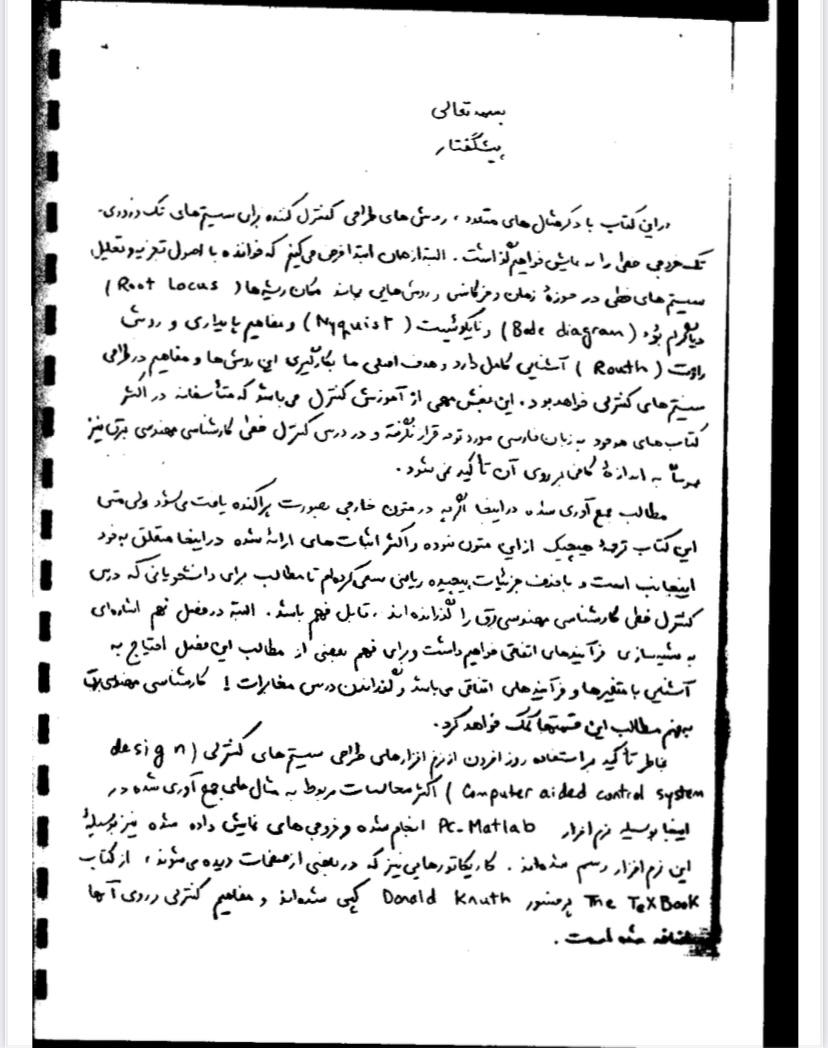 بسمه تعالی
پیشگفتار
در این کتاب با ذکر مثال های متعدد ، روش های طراحی کنترل کننده برای سیستم های تک ورودی -
تک خروجی خطی را به نمایش خواهیم گذاشت . البته از همان ابتدا فرض می کنیم که خواننده با اصول تجزیه و تحلیل
سیستم های خطی در حوزهٔ زمان و فرکانس و روش هایی مانند مکان ریشه ها ( Root Locus )
دیاگرام بُود ( Bode diagram ) و نایکوئیست ( Nyquist ) و مفاهیم پایداری و روش
راوت ( Routh ) آشنایی کامل دارد و هدف اصلی ما بکارگیری این روش ها و مفاهیم در طراحی
سیستم های کنترلی خواهد بود . این بخش مهمی از آموزش کنترل می باشد که متأسفانه در اکثر
کتاب های موجود به زبان فارسی مورد توجه قرار نگرفته و در درس کنترل خطی کارشناسی مهندسی برق نیز
عموماً به اندازهٔ کافی بر روی آن تأکید نمی شود .
مطالب جمع آوری شده در اینجا اگرچه در متون خارجی بصورت پراکنده یافت می شود ولی متن
این کتاب ترجمهٔ هیچیک از این متون نبوده و اکثر اثبات های ارائه شده در اینجا متعلق به خود
اینجانب است و با حذف جزئیات پیچیده ریاضی سعی کرده ام تا مطالب برای دانشجویانی که درس
کنترل خطی کارشناسی مهندسی برق را گذرانده اند ، قابل فهم باشد . البته در فصل نهم اشاره ای
به شبیه سازی فرآیندهای اتفاقی خواهیم داشت و برای فهم بعضی از مطالب این فصل احتیاج به
آشنایی با متغیرها و فرآیندهای اتفاقی می باشد و گذراندن درس مخابرات ! کارشناسی مهندسی برق
به فهم مطالب این قسمتها کمک خواهد کرد .
بخاطر تأکید بر استفاده روز افزون از نرم افزارهای طراحی سیستم های کنترلی ( design
Computer aided control system ) اکثر محاسبات مربوط به مثال های جمع آوری شده در
اینجا بوسیله نرم افزار PC-Matlab انجام شده و خروجی های نمایش داده شده نیز بوسیلهٔ
این نرم افزار رسم شده اند . کاریکاتورهایی نیز که در بعضی از صفحات دیده می شوند ، از کتاب
The TeXBook پرفسور Donald Knuth کپی شده اند و مفاهیم کنترلی بر روی آنها
اضافه شده است .